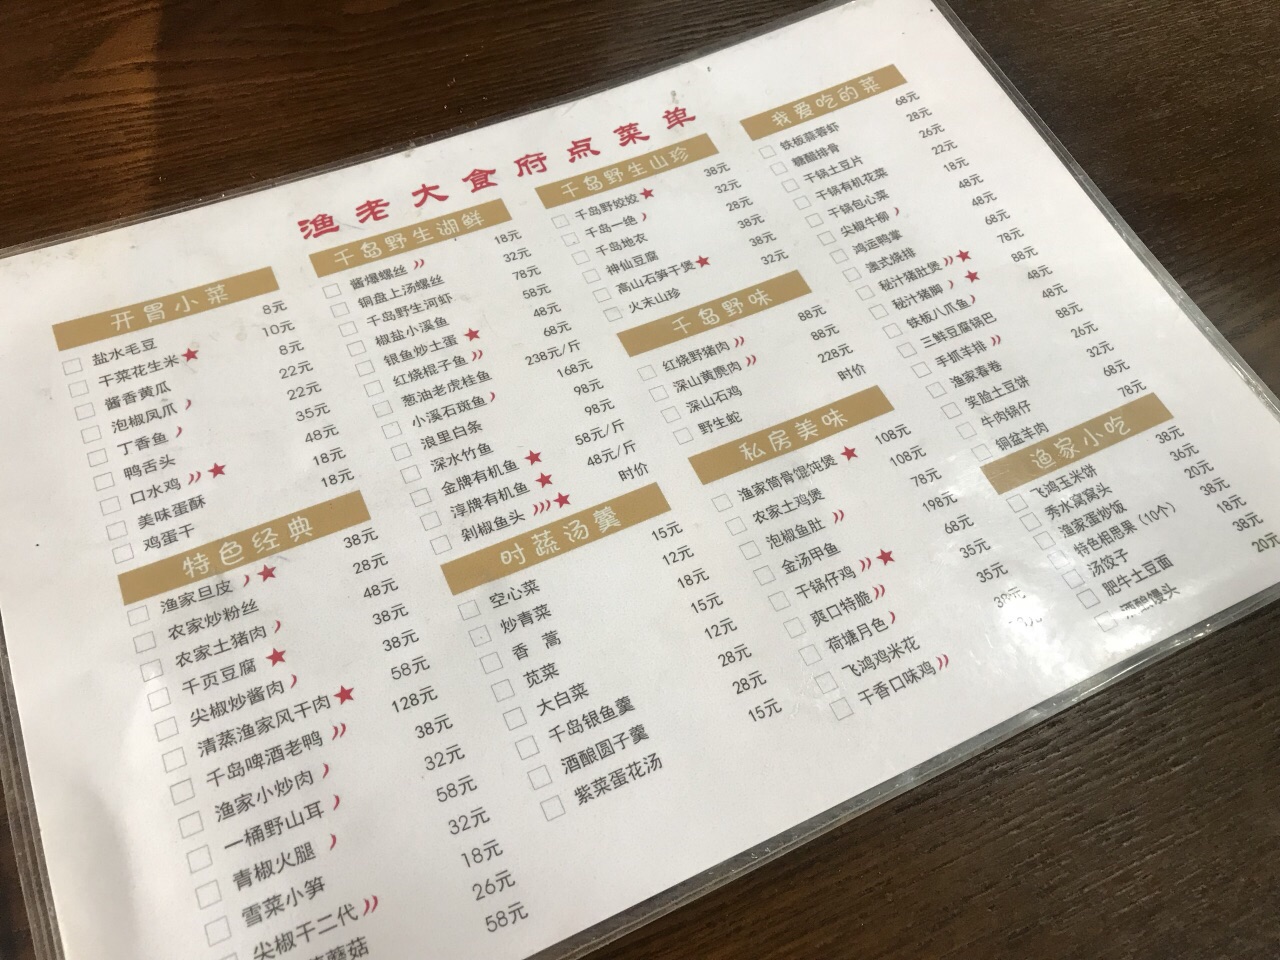 渔老大食府点菜单
开胃小菜
盐水毛豆 8元
干菜花生米★ 10元
酱香黄瓜 8元
泡椒凤爪 22元
丁香鱼 22元
鸭舌头 35元
口水鸡★ 48元
美味蛋酥 18元
鸡蛋干 18元
特色经典
渔家旦皮★ 38元
农家炒粉丝 28元
农家土猪肉 48元
千页豆腐★ 38元
尖椒炒酱肉 38元
清蒸渔家风干肉★ 58元
千岛啤酒老鸭 128元
渔家小炒肉 38元
一桶野山耳 32元
青椒火腿 58元
雪菜小笋 32元
尖椒干二代 18元
蘑菇 26元
58元
千岛野生湖鲜
酱爆螺丝 18元
铜盘上汤螺丝 32元
千岛野生河虾 78元
椒盐小溪鱼 58元
银鱼炒土蛋★ 48元
红烧棍子鱼 68元
葱油老虎桂鱼 238元/斤
小溪石斑鱼 168元
浪里白条 98元
深水竹鱼 98元
金牌有机鱼★ 58元/斤
淳牌有机鱼★ 48元/斤
剁椒鱼头★ 时价
时蔬汤羹
空心菜 15元
炒青菜 12元
香蒿 18元
苋菜 15元
大白菜 12元
千岛银鱼羹 28元
酒酿圆子羹 28元
紫菜蛋花汤 15元
千岛野生山珍
千岛野姣姣★ 38元
千岛一绝 32元
千岛地衣 28元
神仙豆腐 38元
高山石笋干煲★ 38元
火末山珍 32元
千岛野味
红烧野猪肉 88元
深山黄麂肉 88元
深山石鸡 228元
野生蛇 时价
私房美味
渔家筒骨馄饨煲★ 108元
农家土鸡煲 108元
泡椒鱼肚 78元
金汤甲鱼 198元
干锅仔鸡★ 68元
爽口特脆 35元
荷塘月色 35元
飞鸿鸡米花 38元
干香口味鸡
我爱吃的菜
铁板蒜蓉虾 68元
糖醋排骨 28元
干锅土豆片 26元
干锅有机花菜 22元
干锅包心菜 18元
尖椒牛柳 48元
鸿运鸭掌 48元
澳式烧排 68元
秘汁猪肚煲★ 78元
秘汁猪脚★ 88元
铁板八爪鱼 48元
三鲜豆腐锅巴 48元
手抓羊排 88元
渔家春卷 26元
笑脸土豆饼 32元
牛肉锅仔 68元
铜盆羊肉 78元
渔家小吃
飞鸿玉米饼 38元
秀水窝窝头 36元
渔家蛋炒饭 20元
特色相思果（10个） 38元
汤饺子 18元
肥牛土豆面 38元
酒酿馒头 20元